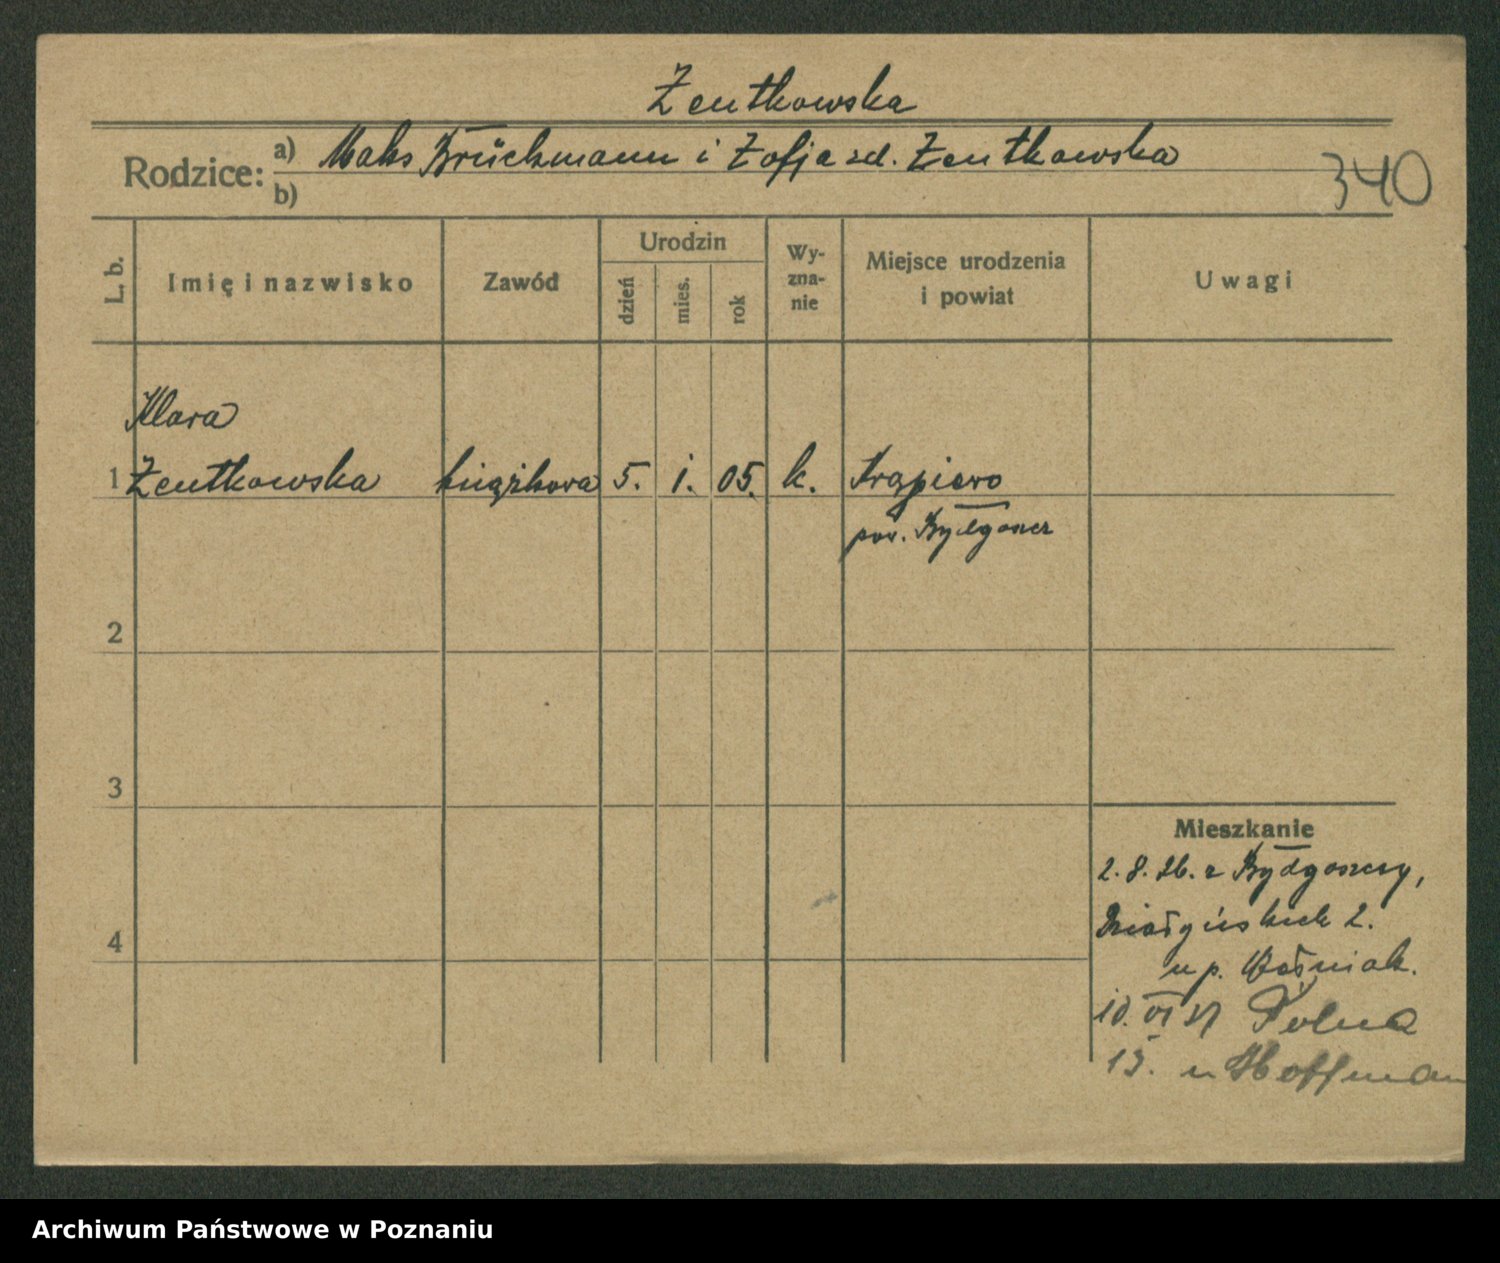 Żentkowska
Rodzice: a) Maks Brückmann i Zofja zd. Żentkowska
b)
340
L. b. Imię i nazwisko Zawód Urodzin dzień mies. rok Wy-zna-nie Miejsce urodzenia i powiat Uwagi
Klara
1 Żentkowska książkowa 5. i. 05. k.
pow. Bydgoszcz
2
3
Mieszkanie
2. 8. 26. z Bydgoszczy,
4
Działyńskich 2.
u p. Woźniak.
10. VI Polna
13. u Hoffmann
Archiwum Państwowe w Poznaniu